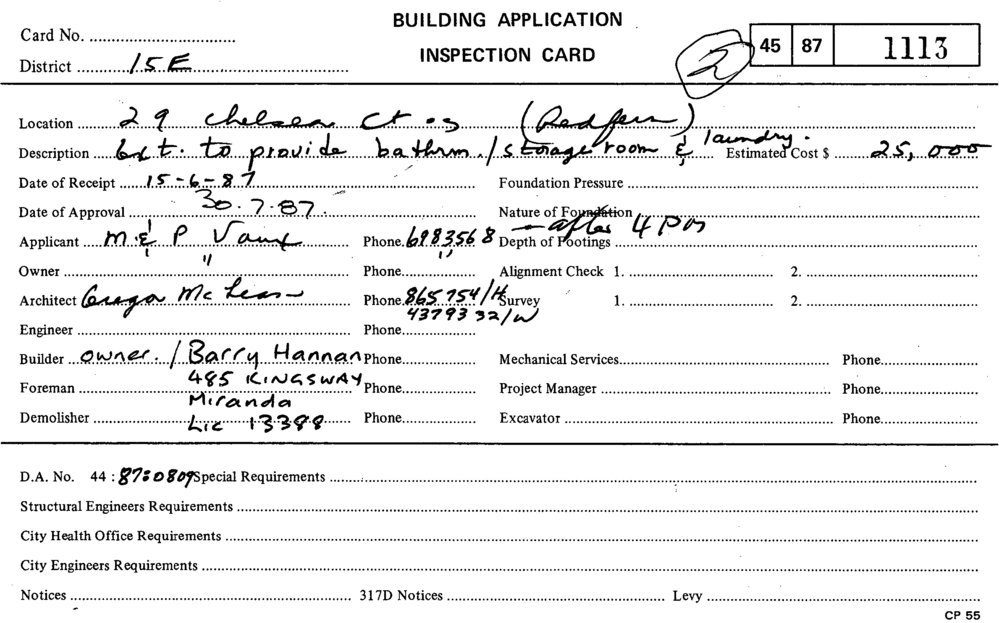 BUILDING APPLICATION
INSPECTION CARD
Card No.
District 15E
2
45 87 1113
Location 29 Chelsea (Redfern)
Description Ext. to provide bathrm./storage room & laundry. Estimated Cost $ 25,000
Date of Receipt 15-6-87 Foundation Pressure
Date of Approval 30.7.87. Nature of Foundation
Applicant M & P Phone 6983568 - after 4 pm Depth of Footings
Owner " Phone " Alignment Check 1. 2.
Architect McLean Phone 865754/H Survey 1. 2.
4379332/W
Engineer Phone
Builder owner. / Barry Hannan Phone Mechanical Services Phone
485 KINGSWAY
Foreman Phone Project Manager Phone
Miranda
Demolisher Lic 13388 Phone Excavator Phone
D.A. No. 44 : 87:0809 Special Requirements
Structural Engineers Requirements
City Health Office Requirements
City Engineers Requirements
Notices 317D Notices Levy
CP 55